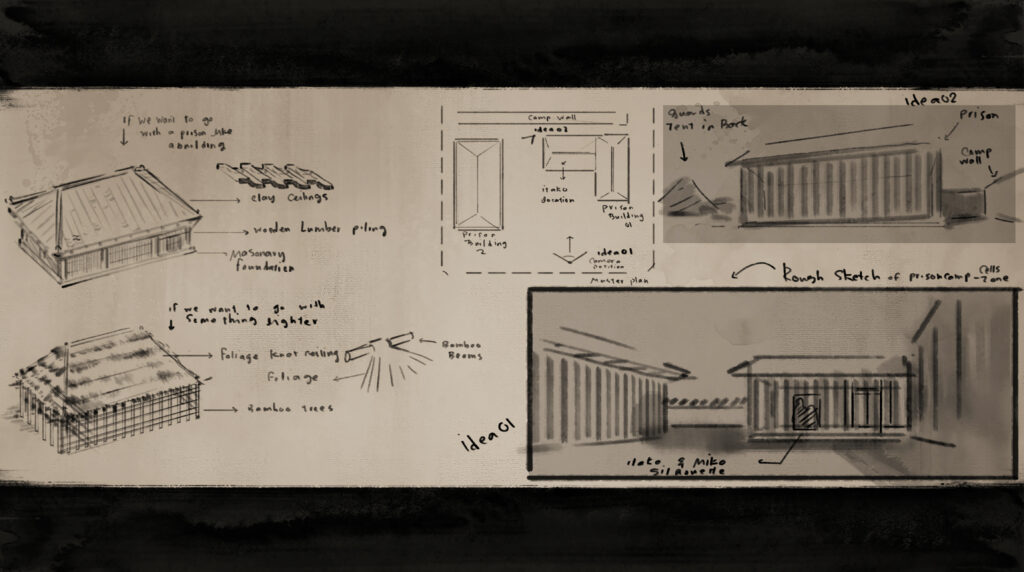 If we want to go
with a prison like
a building
clay ceilings
wooden lumber piling
Masonary
foundation
if we want to go with
Something lighter
Foliage knot resting
Foliage
Bamboo trees
Bamboo
Beams
Camp wall
idea02
itako
location
prison
Building
01
Prison
Building
2
idea01
Camera
position
Master plan
idea02
Guards
Tent in Back
Prison
Camp
wall
Rough Sketch of prison camp - Cells
Zone
idea01
itako & Miko
Silhouette